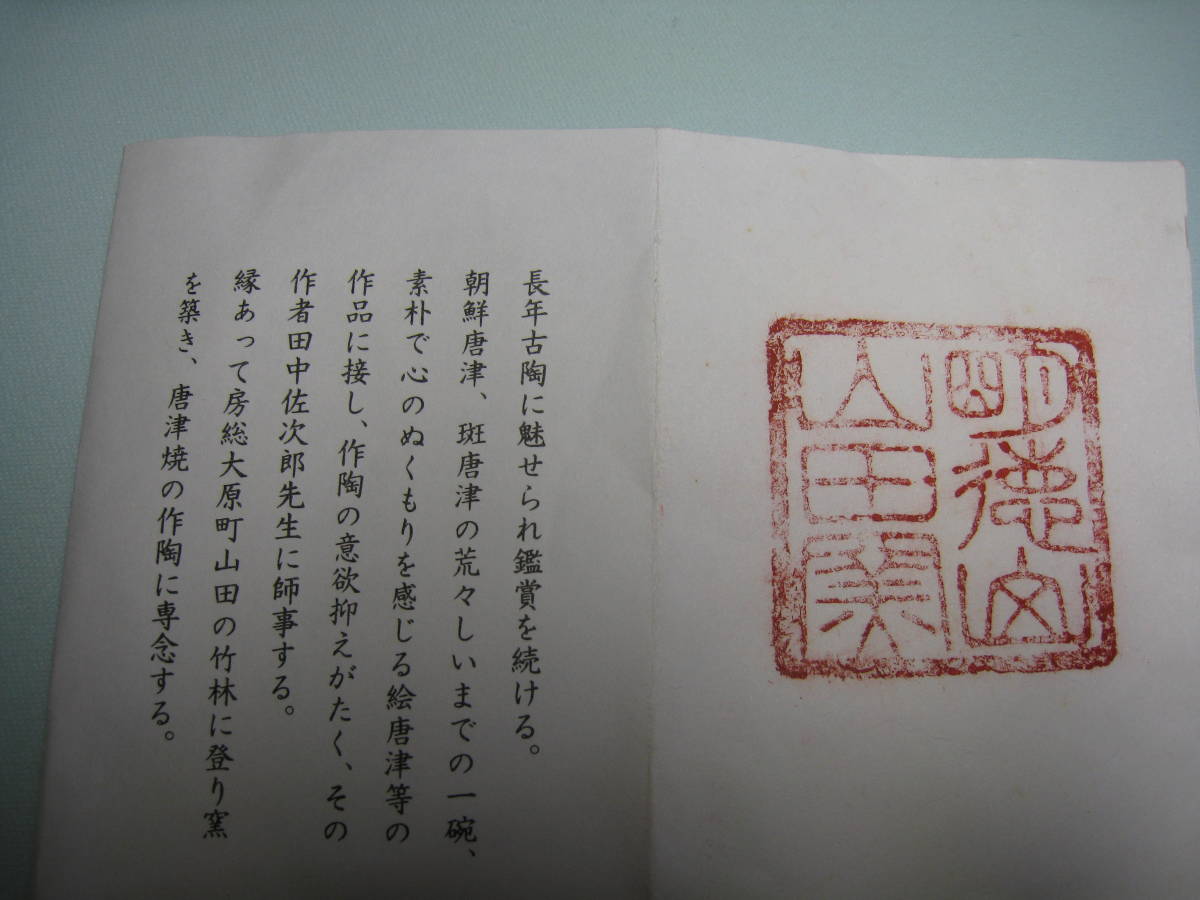 明徳
山田窯
長年古陶に魅せられ鑑賞を続ける。
朝鮮唐津、斑唐津の荒々しいまでの一碗、
素朴で心のぬくもりを感じる絵唐津等の
作品に接し、作陶の意欲抑えがたく、その
作者田中佐次郎先生に師事する。
縁あって房総大原町山田の竹林に登り窯
を築き、唐津焼の作陶に専念する。